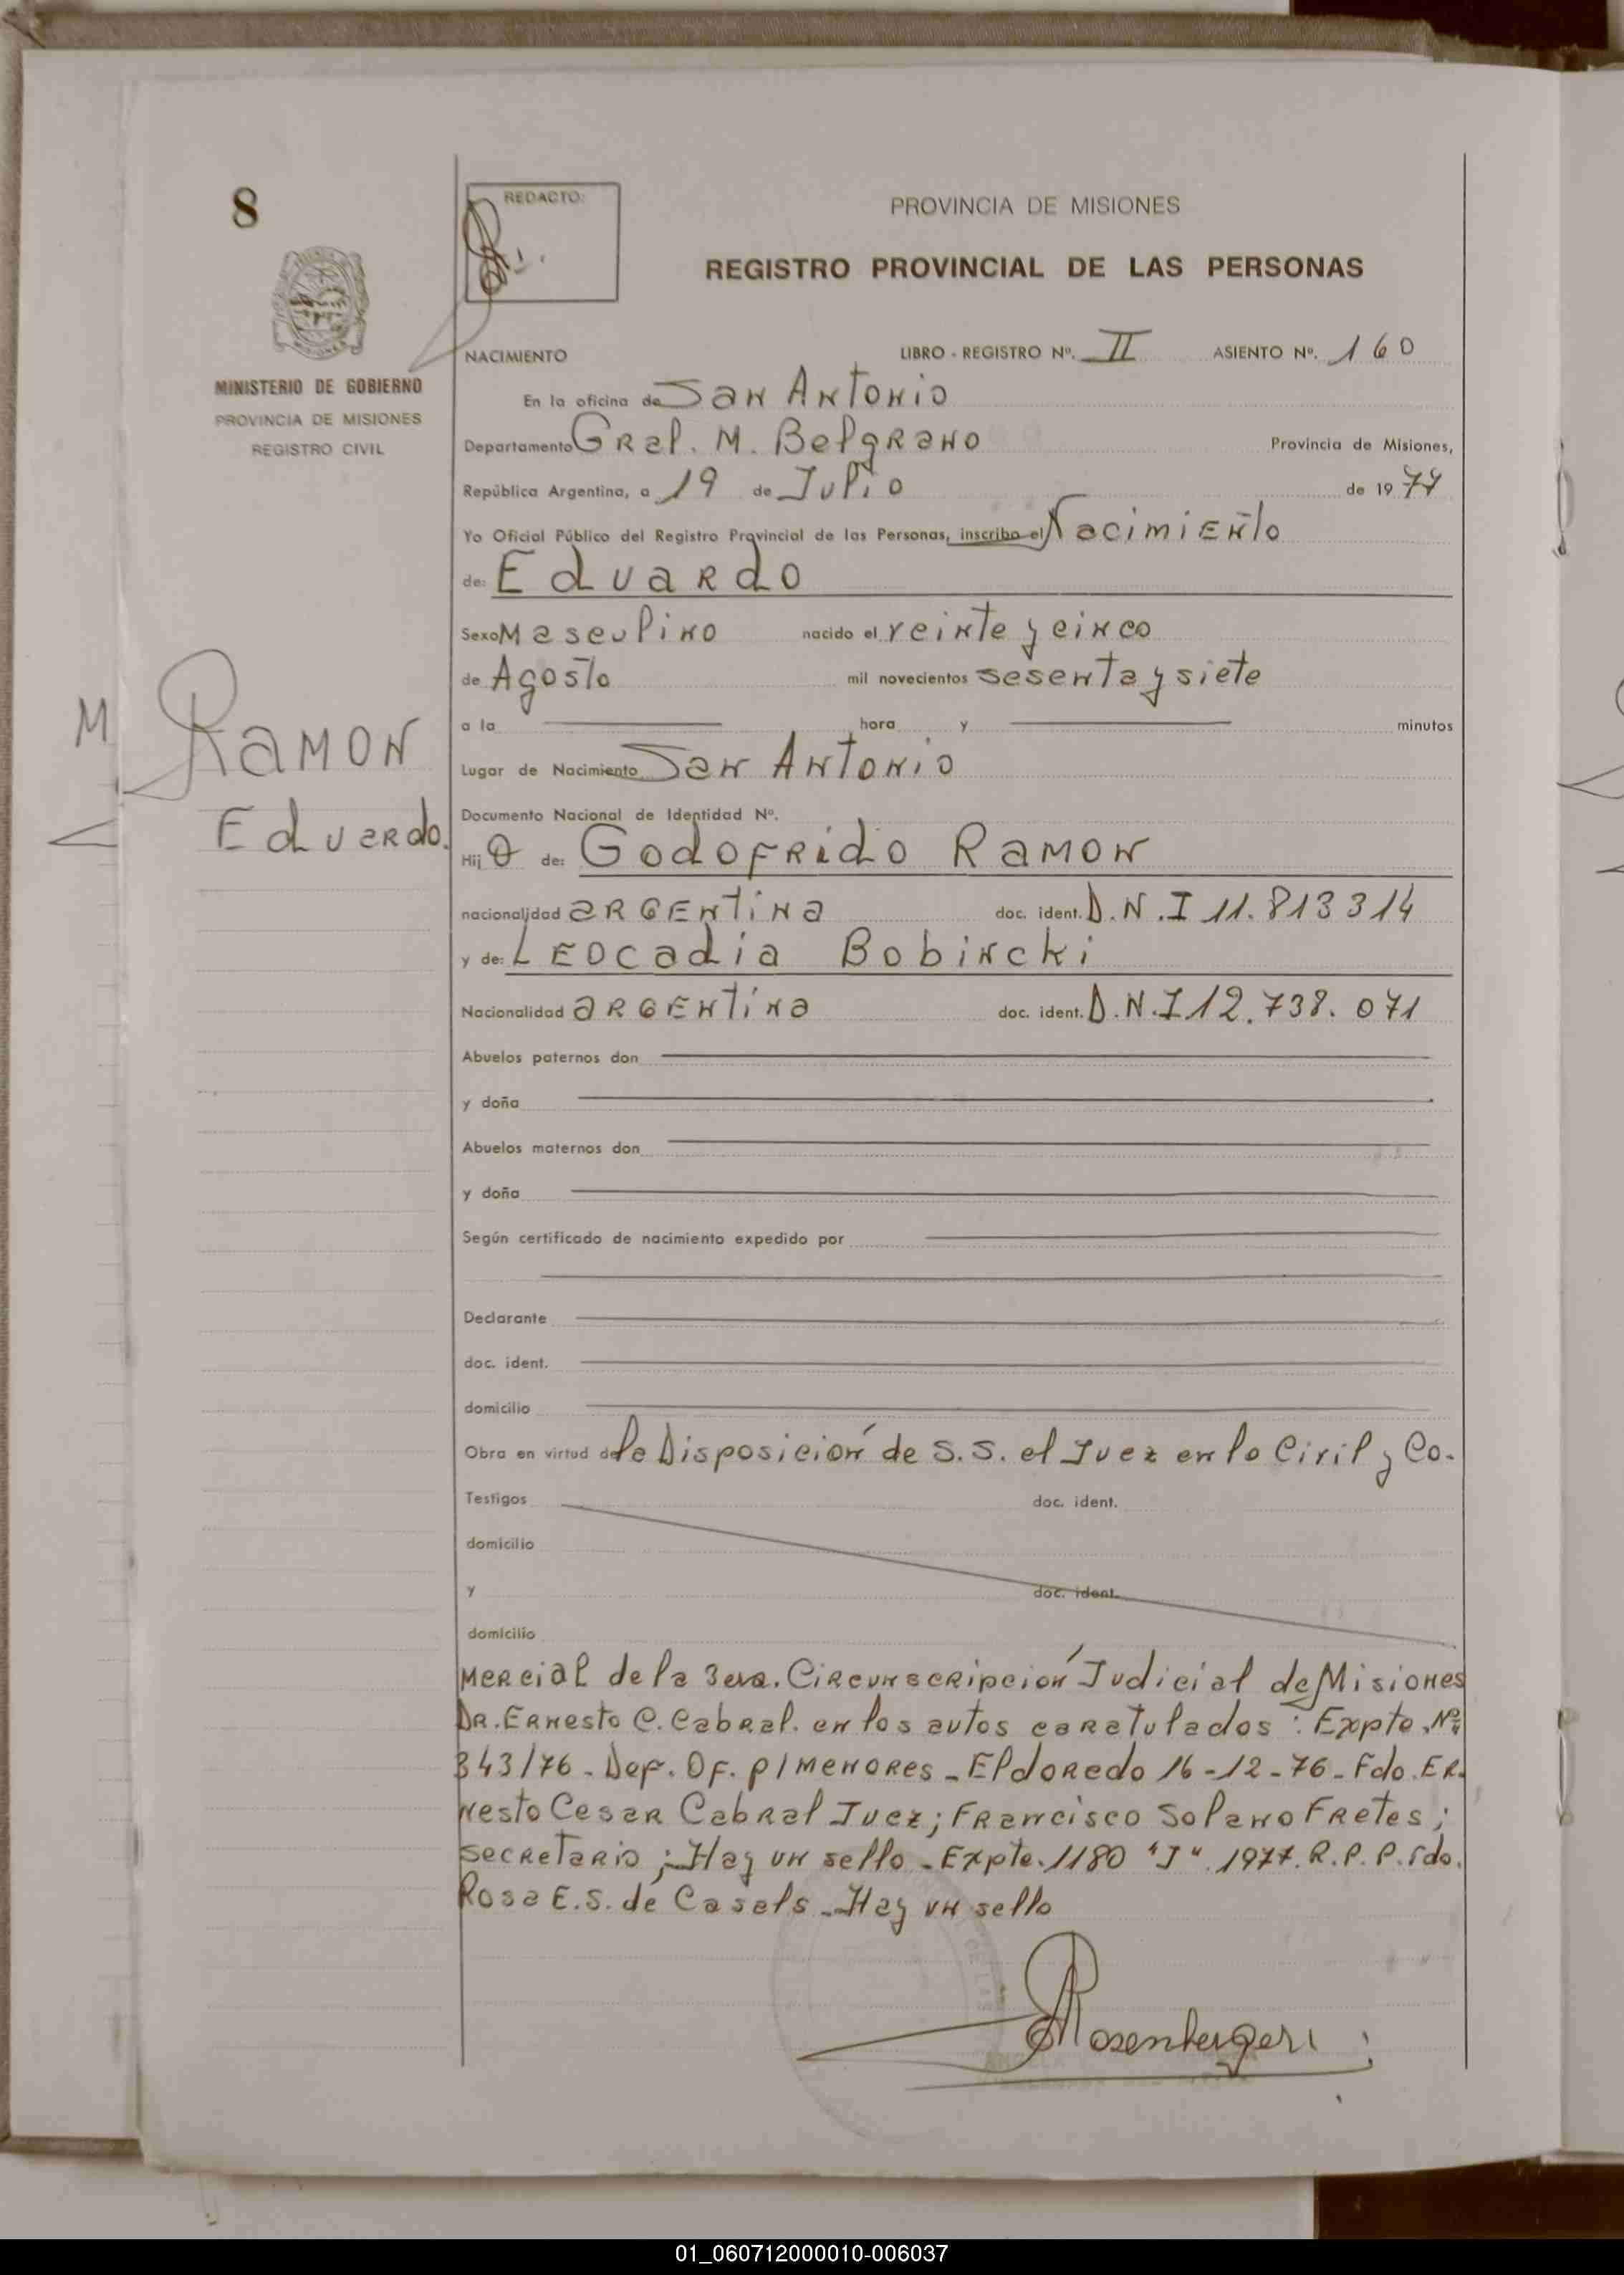 8
REDACTO:
PROVINCIA DE MISIONES
REGISTRO PROVINCIAL DE LAS PERSONAS
MISIONES
MINISTERIO DE GOBIERNO
PROVINCIA DE MISIONES
REGISTRO CIVIL
NACIMIENTO LIBRO - REGISTRO Nº. II ASIENTO Nº. 160
En la oficina de San Antonio
Departamento Gral. M. Belgrano Provincia de Misiones,
República Argentina, a 19 de Julio de 1977
Yo Oficial Público del Registro Provincial de las Personas, inscribo el Nacimiento
de: Eduardo
Sexo Masculino nacido el veinte y cinco
de Agosto mil novecientos sesenta y siete
a la hora y minutos
M Ramon
Eduardo.
Lugar de Nacimiento San Antonio
Documento Nacional de Identidad Nº.
Hij o de: Godofrido Ramon
nacionalidad argentina doc. ident. D.N.I 11.813314
y de: Leocadia Bobincki
Nacionalidad argentina doc. ident. D.N.I 12.738.071
Abuelos paternos don
y doña
Abuelos maternos don
y doña
Según certificado de nacimiento expedido por
Declarante
doc. ident.
domicilio
Obra en virtud de la Disposición de S.S. el Juez en lo Civil y Co-
Testigos doc. ident.
domicilio
y doc. ident.
domicilio
mercial de la 3era. Circunscripción Judicial de Misiones
Dr. Ernesto C. Cabral. en los autos caratulados: Expte. Nº
343/76 - Def. Of. p/menores - Eldoredo 16-12-76 - Fdo. Er-
nesto Cesar Cabral Juez; Francisco Solano Fretes;
secretario; Hay un sello - Expte. 1180 "J" 1977. R.P.P. fdo.
Rosa E.S. de Casals - Hay un sello
Rosenberger
01_060712000010-006037